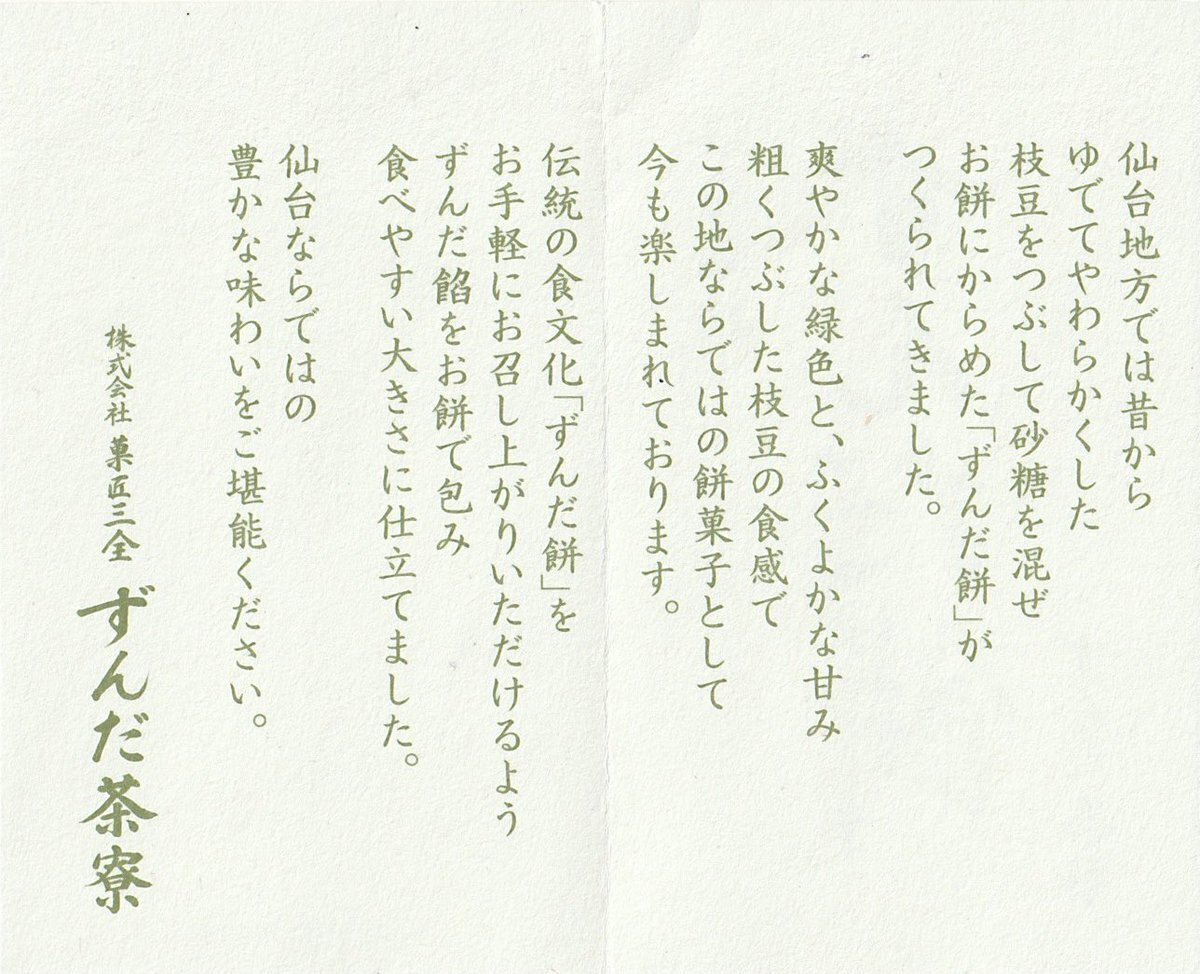 仙台地方では昔から
ゆでてやわらかくした
枝豆をつぶして砂糖を混ぜ
お餅にからめた「ずんだ餅」が
つくられてきました。
爽やかな緑色と、ふくよかな甘み
粗くつぶした枝豆の食感で
この地ならではの餅菓子として
今も楽しまれております。
伝統の食文化「ずんだ餅」を
お手軽にお召し上がりいただけるよう
ずんだ餡をお餅で包み
食べやすい大きさに仕立てました。
仙台ならではの
豊かな味わいをご堪能ください。
株式会社 菓匠三全 ずんだ茶寮